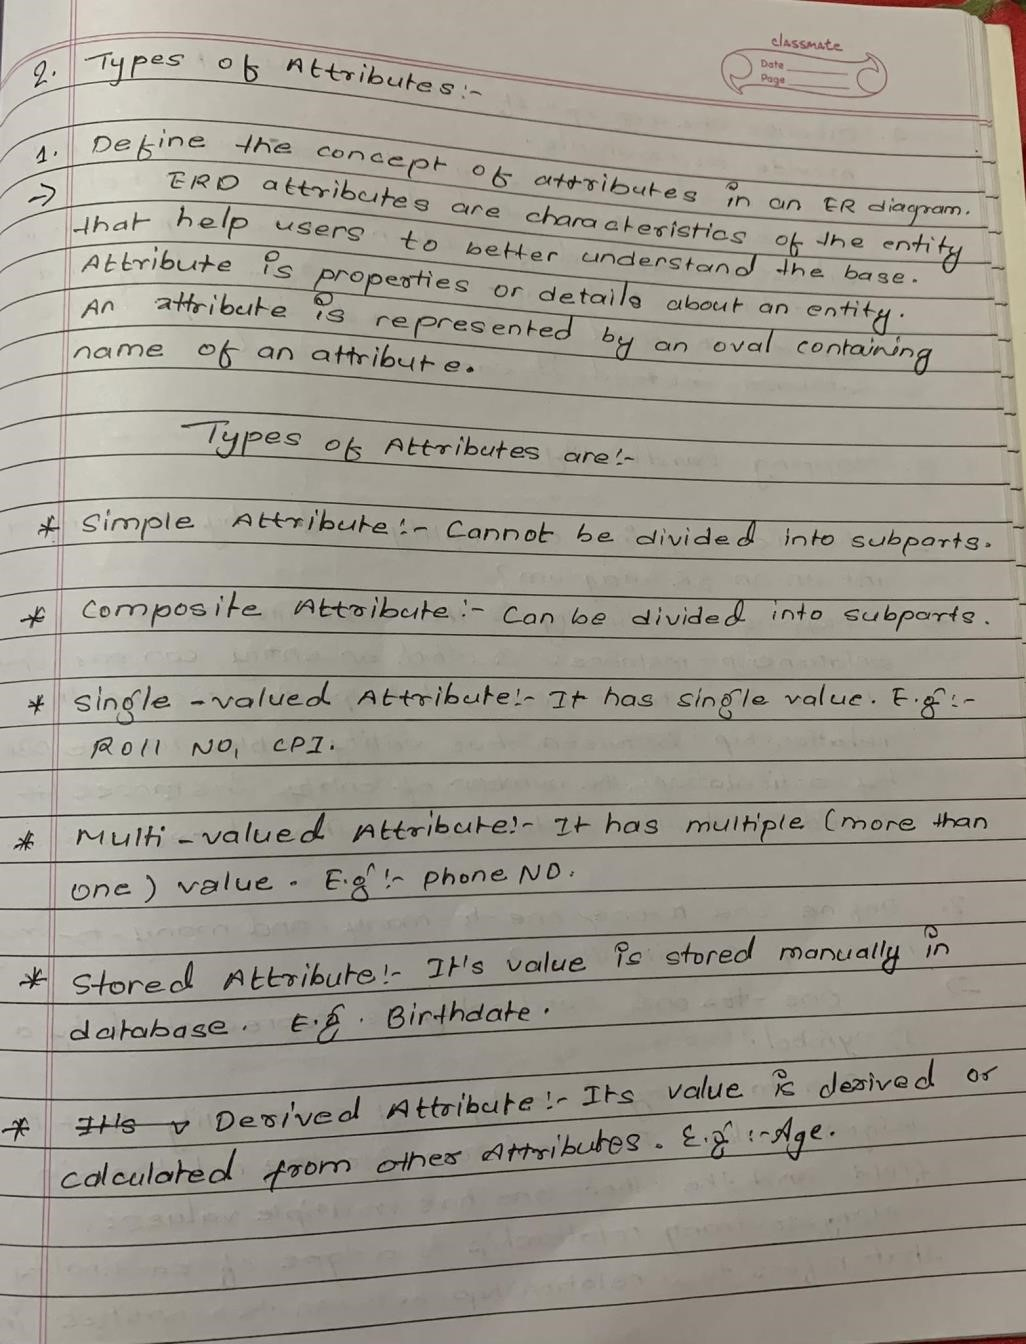 classmate
Date
Page
2. Types of Attributes:-
1. Define the concept of attributes in an ER diagram.
→ ERD attributes are characteristics of the entity
that help users to better understand the base.
Attribute is properties or details about an entity.
An attribute is represented by an oval containing
name of an attribute.
Types of Attributes are:-
* Simple Attribute:- Cannot be divided into subparts.
* Composite Attribute:- Can be divided into subparts.
* Single-valued Attribute:- It has single value. E.g:-
Roll NO, CPI.
* Multi-valued Attribute:- It has multiple (more than
one) value. E.g:- phone NO.
* Stored Attribute:- It's value is stored manually in
database. E.g. Birthdate.
* It's v Derived Attribute:- Its value is derived or
calculated from other Attributes. E.g:- Age.